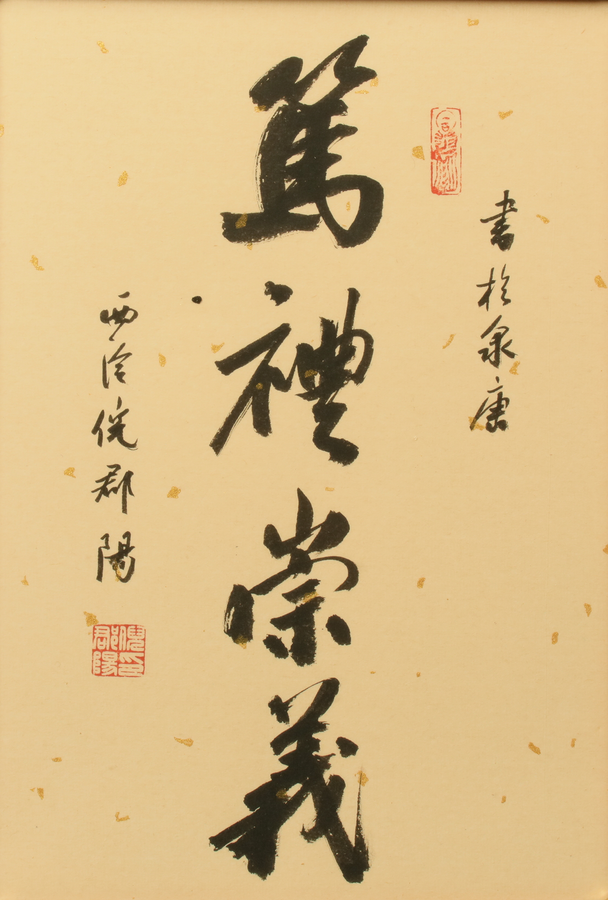 書於泉唐
篤禮崇義
西泠倪郡陽
倪印
郡陽